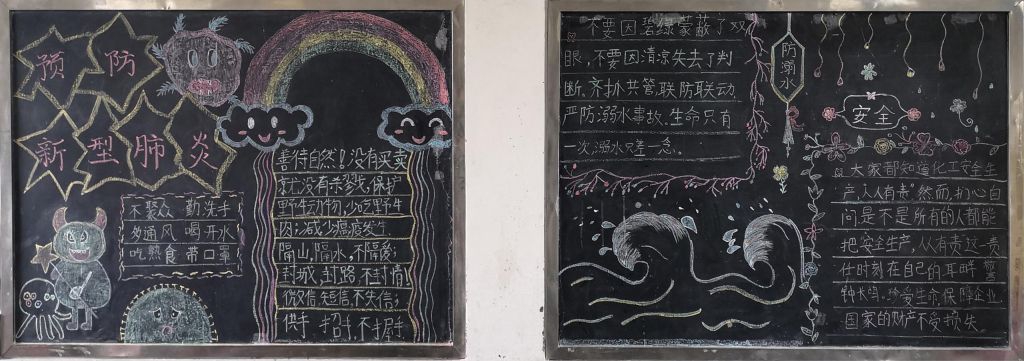 预防
新型肺炎
不聚众 勤洗手
多通风 喝开水
吃熟食 带口罩
善待自然！没有买卖
就没有杀戮，保护
野生动物，少吃野生
肉；减少瘟疫发生
隔山，隔水，不隔爱；
封城，封路，不封情！
微信，短信，不失信；
拱手，招手，不握手
不要因碧绿蒙蔽了双
眼，不要因清凉失去了判
断，齐抓共管，联防联动，
严防溺水事故，生命只有
一次，溺水只差一念。
防溺水
安全
大家都知道化工安全生
产，人人有责，然而扪心自
问是不是所有的人都能
把安全生产，人人有责这一责
任时刻在自己的耳畔警
钟长鸣，珍爱生命，保障企业、
国家的财产不受损失。